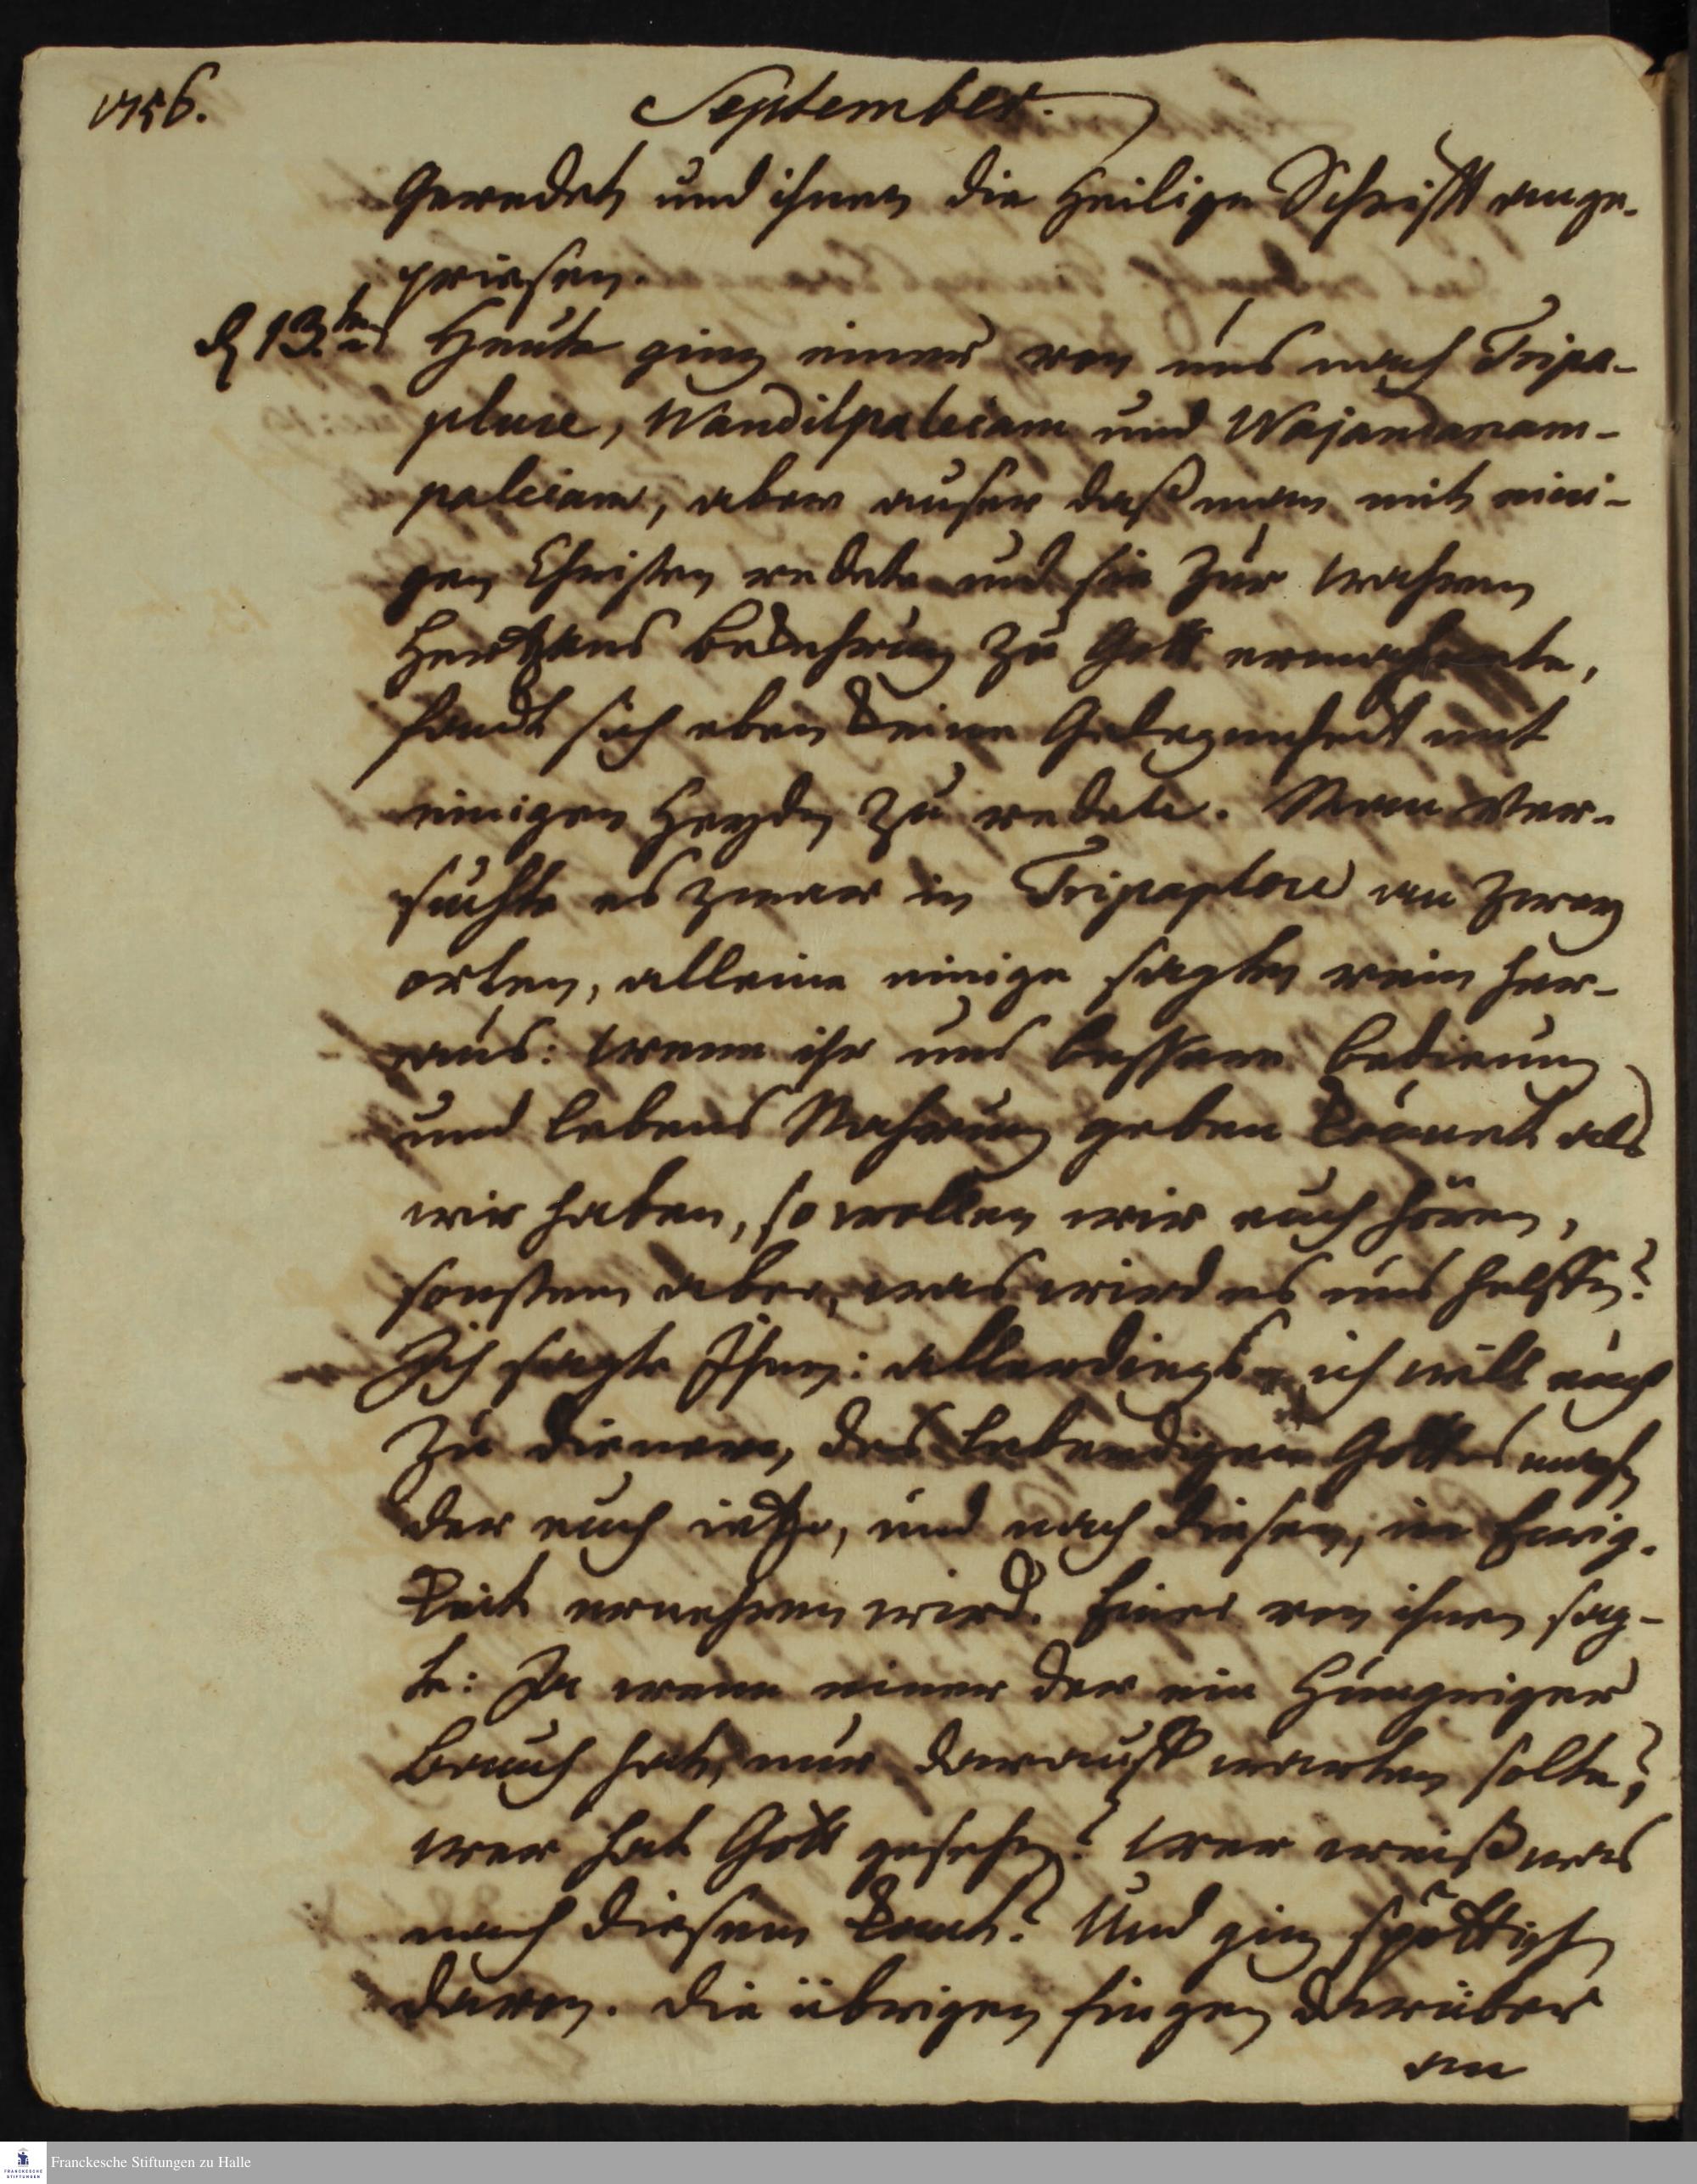 1756.
September.
Geredet und ihnen die Heilige Schrifft ange-
priesen.
d 13.ten Heute ging einer von uns nach Tripa-
plure, Wandilpaleiam und Wajandaram-
paleiam, aber auser daß man mit eini-
gen Christen redete und sie zur wahren
Hertzens bekehrung zu Gott ermahnete,
fandt sich eben keine Gelegenheit mit
einigen Heyden zu reden. Man ver-
suchte es zwar in Tripaplore an zwey
orten, alleine einige sagten rein her-
aus: wenn ihr uns bessere bedienung
und lebens Nahrung geben könnet als
wir haben, so wollen wir euch hören,
sonsten aber, was wird es uns helffen?
Ich sagte Ihnen: allerdings, ich will euch
zu dienern, des lebendigen Gottes machen
der euch ietzo, und nach diesen, in Ewig-
keit ernehren wird. Einer von ihnen sag-
te: Ja wenn einer der ein Hungriger
bauch hat, nur darauff warten solte,
wer hat Gott gesehen? wer weiß was
nach diesem komt? Und ging spöttisch
davon. die übrigen fingen darüber
an
Franckesche Stiftungen zu Halle